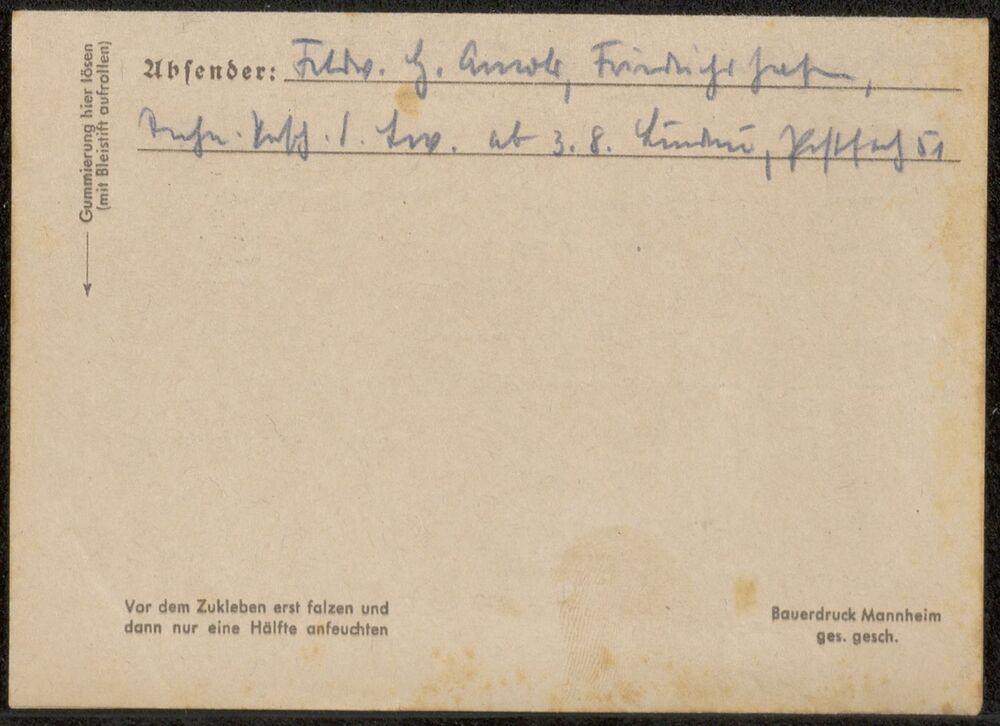 Absender: Feldw. H. Arnold, Friedrichshafen,
ab 3. 8. Lindau, Postfach 51
Gummierung hier lösen
(mit Bleistift aufrollen)
Vor dem Zukleben erst falzen und
dann nur eine Hälfte anfeuchten
Bauerdruck Mannheim
ges. gesch.